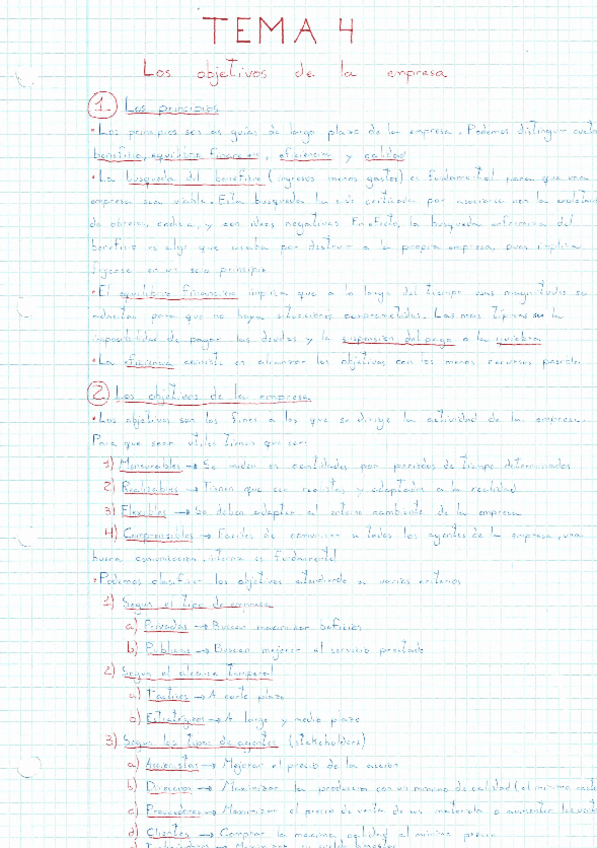 TEMA 4
Los objetivos de la empresa
1 Los principios
· Los principios son las guías de largo plazo de la empresa. Podemos distinguir
beneficio, equilibrio financiero, eficiencia y calidad
· La búsqueda del beneficio (ingresos menos gastos) es fundamental para que una
empresa sea viable. Esta búsqueda ha sido criticada por asociarse con la
de obreros, codicia, y con ideas negativas. En efecto, la búsqueda enfermiza del
beneficio es algo que acaba por destruir a la propia empresa, pues implica
fijarse en un solo principio
· El equilibrio financiero implica que a lo largo del tiempo sus magnitudes se
para que no haya situaciones comprometidas. Las más típicas son la
imposibilidad de pagar las deudas y la suspensión del pago o la quiebra
· La eficiencia consiste en alcanzar los objetivos con los menos recursos posible
2 Los objetivos de la empresa
· Los objetivos son los fines a los que se dirige la actividad de la empresa.
Para que sean útiles tienen que ser:
1) Mensurables → Se miden en cantidades por periodos de tiempo determinados
2) Realizables → Tienen que ser realistas y adaptados a la realidad
3) Flexibles → Se deben adaptar al entorno cambiante de la empresa
4) Comprensibles → Fáciles de comunicar a todos los agentes de la empresa, una
buena comunicación interna es fundamental
· Podemos clasificar los objetivos atendiendo a varios criterios
1) Según el tipo de empresa
a) Privadas → Buscan maximizar beneficios
b) Públicas → Buscan mejorar el servicio prestado
2) Según el alcance temporal
a) Tácticos → A corto plazo
b) Estratégicos → A largo y medio plazo
3) Según los tipos de agentes (stakeholders)
a) Accionistas → Mejorar el precio de la acción
b) Dirección → Maximizar la producción con un mínimo de calidad (el mínimo
c) Proveedores → Maximizar el precio de venta de un material o aumentar las
d) Clientes → Comprar la máxima calidad al mínimo precio